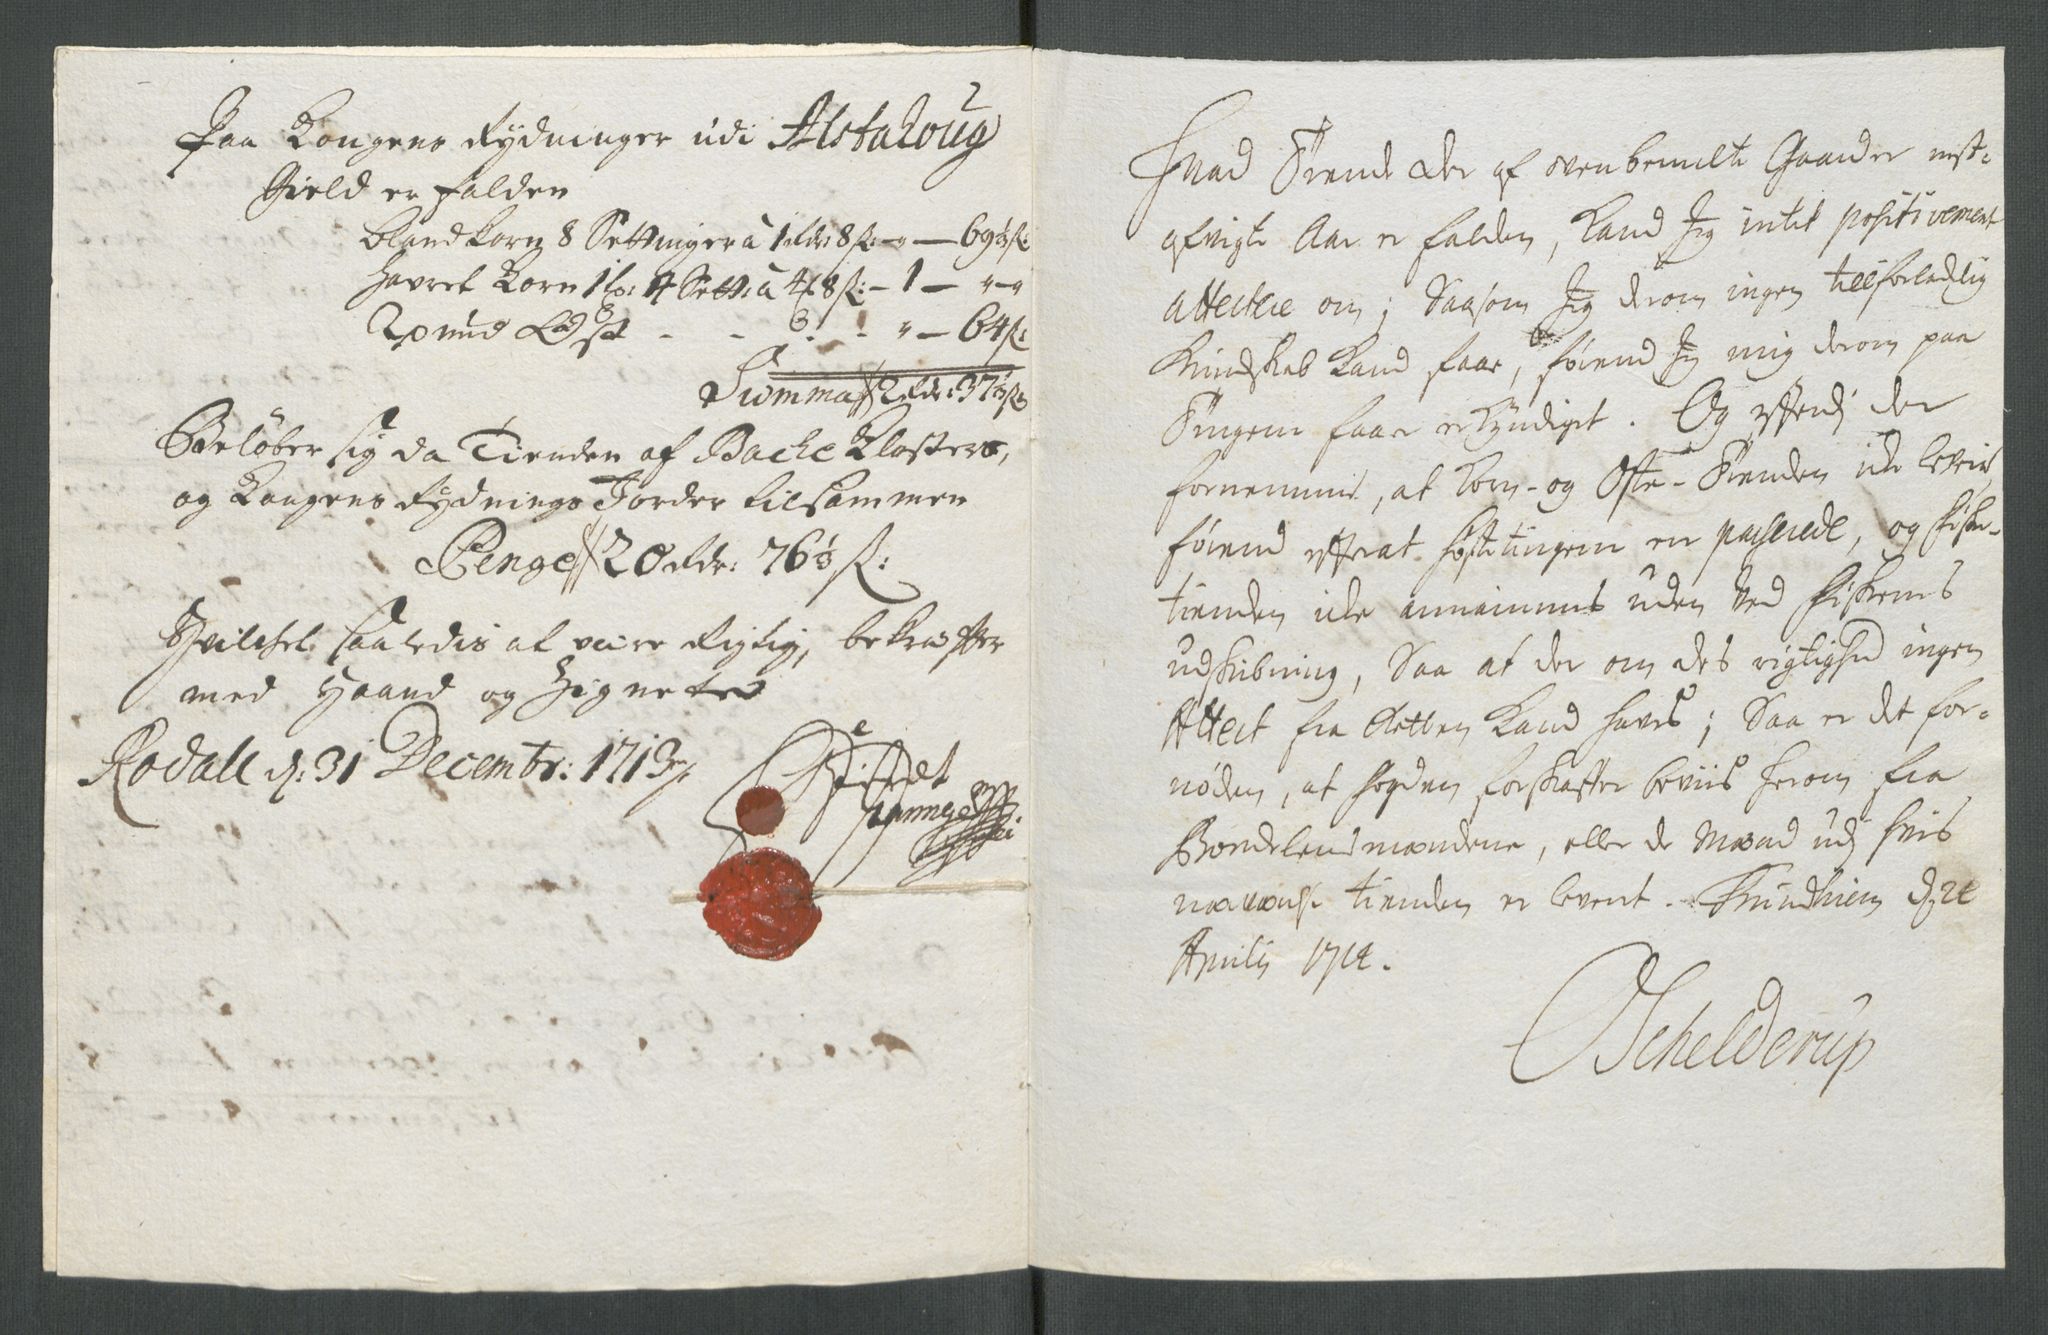 Paa Kongens Rydninger udi Alstahoug
Gield er falden
Blandkorn 8 Settinger à 1 Rdr 8 ß: - " - 69⅓ ß:
Havret Korn 1 tp: 4 Sett: à 4 8 ß: - 1 - " - "
2 pund Ost - - - " - 64 ß:
Summa // 2 Rdr: 37⅓ ß
Beløber sig da Tienden af Bache Klosters,
og Kongens Rydnings Jorder tilsammen
Penge // 20 Rdr: 76⅓ ß:
Hvilchet saaledis at være Rigtig, bekræffter
med Haand og Zignete
Rodall d: 31 Decembr: 1713
Hvad Tiende der af ovenbemelte Gaarder nest-
afvigte Aar er falden, kand Jeg intet positivement
attestere om; Saasom Jeg derom ingen tilforladelig
Kundskab kand faae, førend Jeg mig derom paa
Tingene faar erkyndiget. Og efterdj der
fornemmis, at Korn- og Oste-Tienden icke leveris
førend efterat Høstetingene er passerede, og fiske-
tienden icke annammis uden ved fiskenes
udskibning, Saa at der om des rigtighed ingen
Attest fra Retten kand hafves; Saa er det for-
nøden, at Fogden forskaffer beviis herom fra
Bondelensmændene, eller de Mænd udj hvis
nærværelse tienden er levert. Trundhiem d: 21
Aprilis 1714.
Schelderup